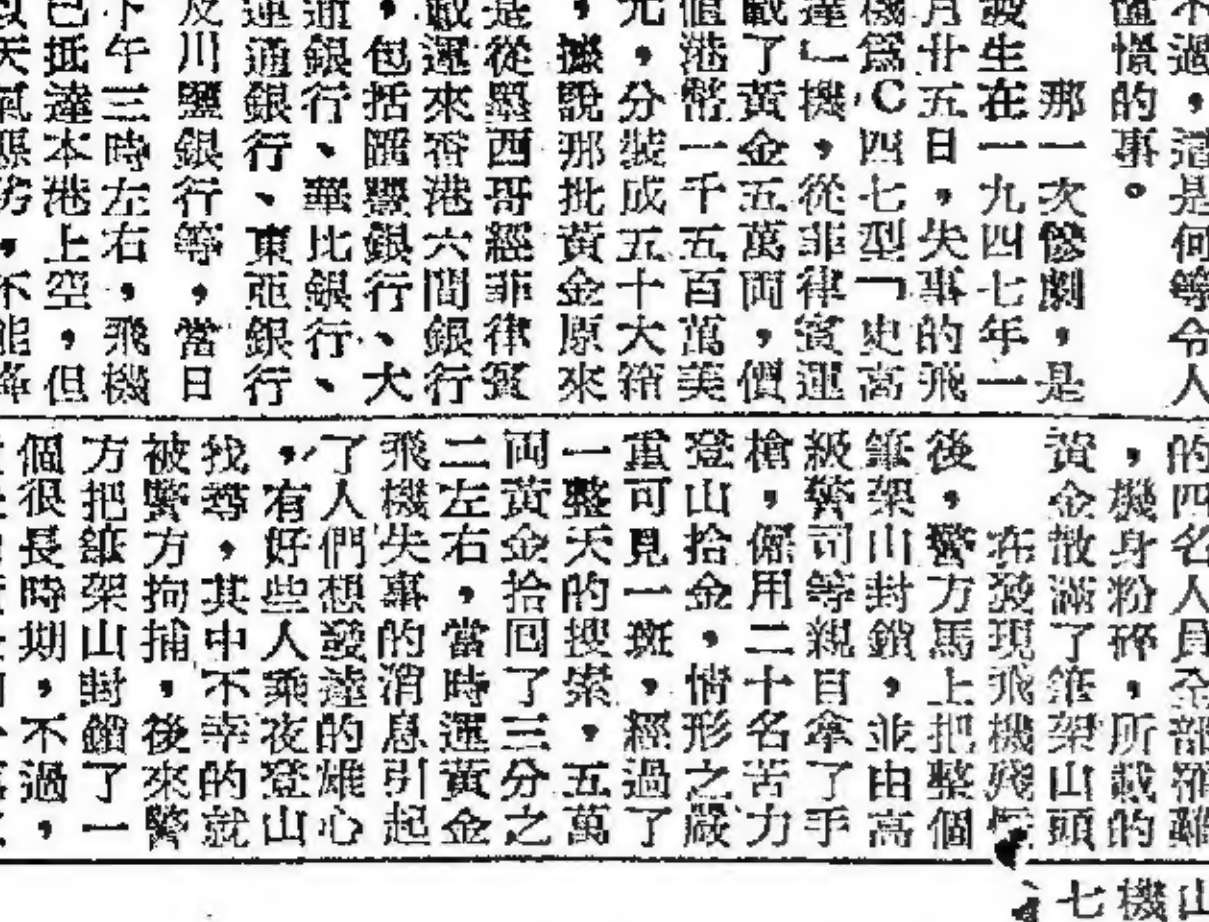 不過，這是何等令人
憧憬的事。
那一次慘劇，是
發生在一九四七年一
月廿五日，失事的飛
機爲C四七型「史高
達」機，從菲律賓運
載了黃金五萬両，價
值港幣一千五百萬美
元，分裝成五十大箱
，據說那批黃金原來
是從墨西哥經菲律賓
載運來香港六間銀行
，包括匯豐銀行、大
通銀行、華比銀行、
運通銀行、東亞銀行
及川鹽銀行等，當日
下午三時左右，飛機
已抵達本港上空，但
以天氣惡劣，不能降
的四名人員全部罹難
，機身粉碎，所載的
黃金散滿了筆架山頭
在發現飛機殘
後，警方馬上把整個
筆架山封鎖，並由高
級警司等親自拿了手
槍，僱用二十名苦力
登山拾金，情形之嚴
重可見一斑，經過了
一整天的搜索，五萬
両黃金拾回了三分之
二左右，當時運黃金
飛機失事的消息引起
了人們想發達的雄心
，有好些人乘夜登山
找尋，其中不幸的就
被警方拘捕，後來警
方把筆架山封鎖了一
個很長時期，不過，
山
機
七